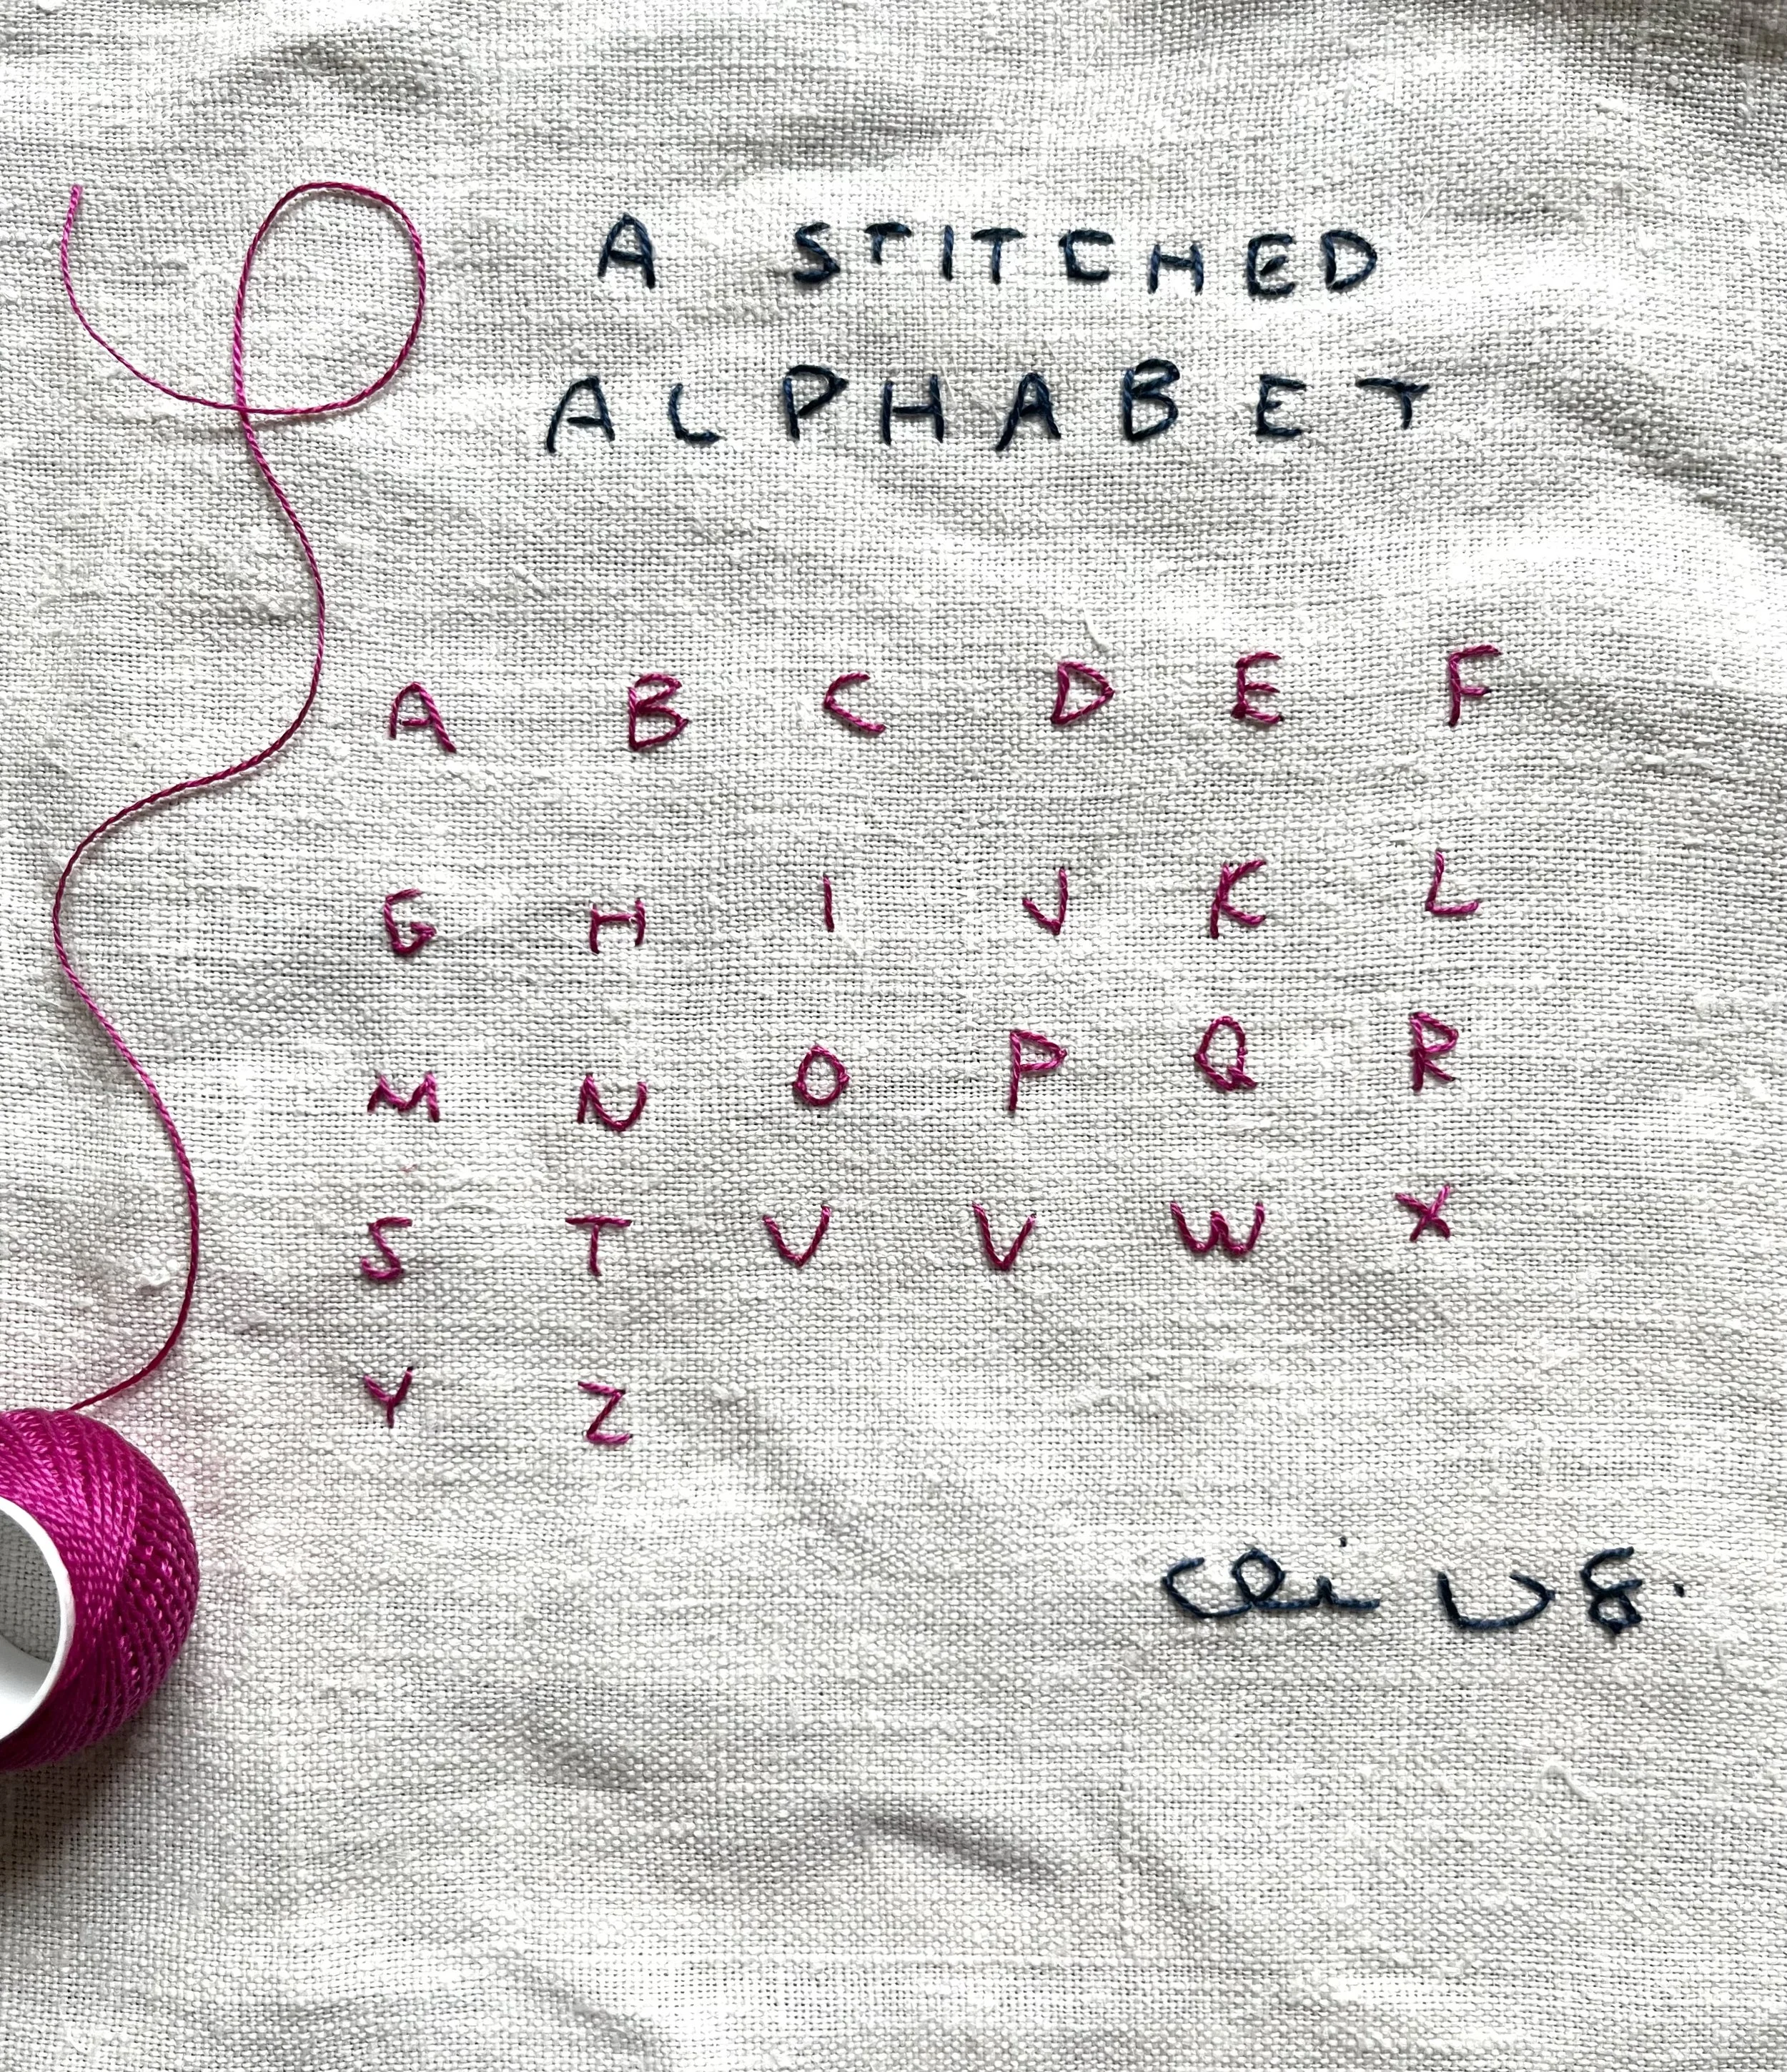 A STITCHED
ALPHABET
A B C D E F
G H I J K L
M N O P Q R
S T U V W X
Y Z